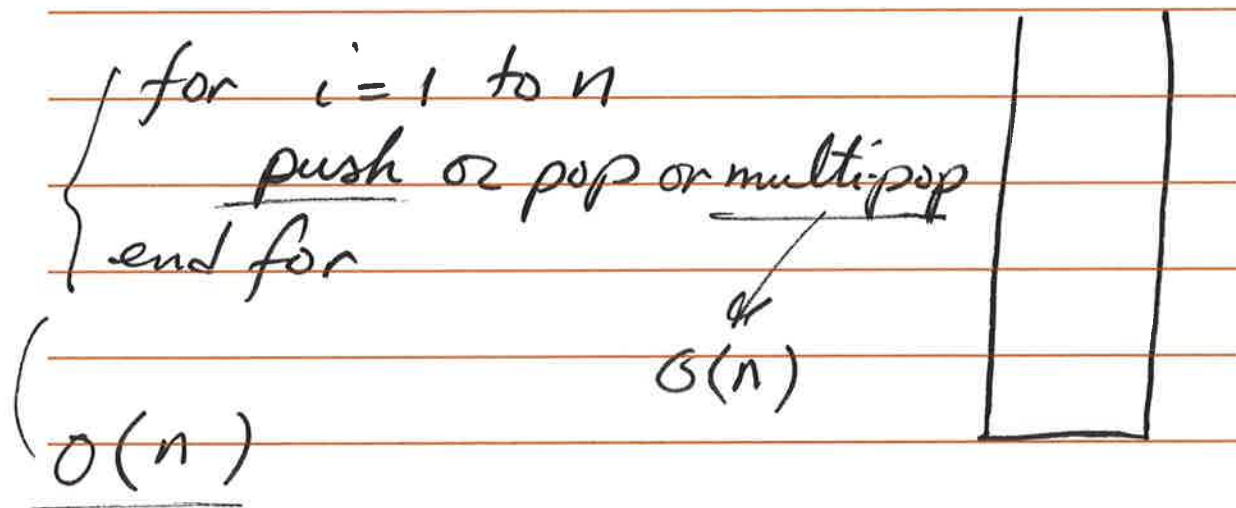 for i = 1 to n
push or pop or multi-pop
end for
O(n)
O(n)